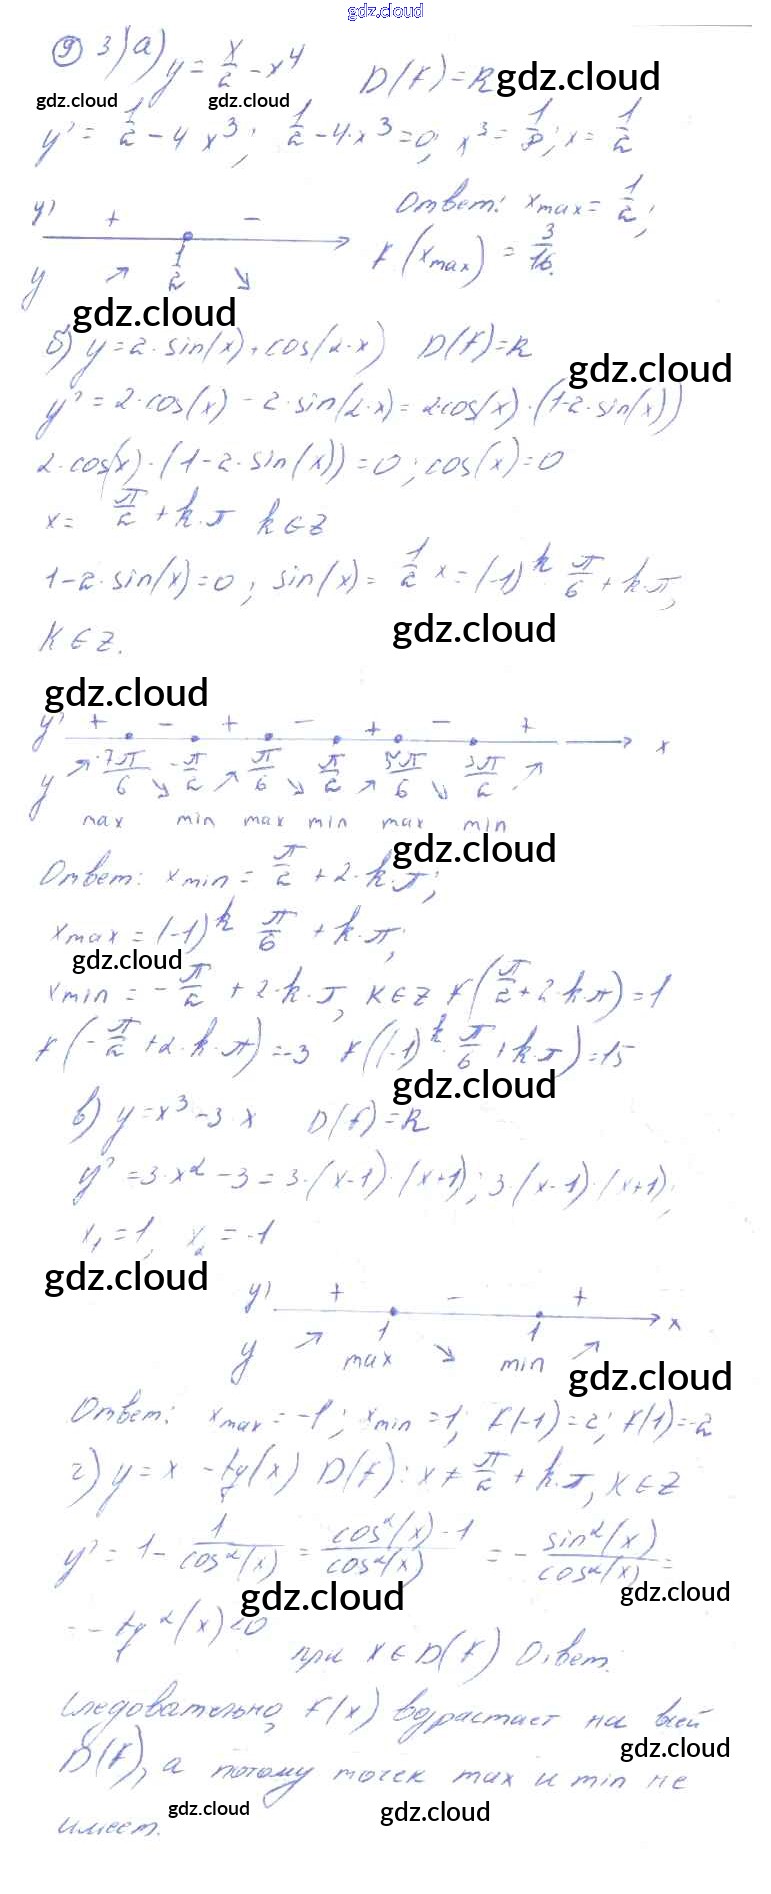 gdz.cloud
9 3) а) y = x/2 - x^4 D(f) = R gdz.cloud
gdz.cloud gdz.cloud
y' = 1/2 - 4 x^3; 1/2 - 4·x^3 = 0; x^3 = 1/8; x = 1/2
Ответ: x max = 1/2;
y' + -
f(x max) = 3/16.
1/2
y ↗ ↘
gdz.cloud
б) y = 2·sin(x) + cos(2·x) D(f) = R
gdz.cloud
y' = 2·cos(x) - 2·sin(2·x) = 2·cos(x)·(1-2·sin(x))
2·cos(x)·(1-2·sin(x)) = 0; cos(x) = 0
x = π/2 + k·π k ∈ Z
1-2·sin(x) = 0; sin(x) = 1/2 x = (-1)^k π/6 + k·π,
gdz.cloud
K ∈ Z.
gdz.cloud
y' + - + - + - + x
-7π/6 -π/2 π/6 π/2 5π/6 3π/2
y ↗ ↘ ↗ ↘ ↗ ↘ ↗
max min max min max min
gdz.cloud
Ответ: x min = π/2 + 2·k·π;
x max = (-1)^k π/6 + k·π;
gdz.cloud
x min = -π/2 + 2·k·π, K ∈ Z f(π/2 + 2·k·π) = 1
f(-π/2 + 2·k·π) = -3 f((-1)^k · π/6 + k·π) = 15
gdz.cloud
в) y = x^3 - 3·x D(f) = R
y' = 3·x^2 - 3 = 3·(x-1)·(x+1); 3·(x-1)·(x+1);
x₁ = 1, x₂ = -1
gdz.cloud
y' + - +
x
1 1
y ↗ max ↘ min ↗
gdz.cloud
Ответ: x max = -1; x min = 1; f(-1) = 2; f(1) = -2
г) y = x - tg(x) D(f): x ≠ π/2 + k·π, K ∈ Z
y' = 1 - 1/cos^2(x) = cos^2(x)-1/cos^2(x) = - sin^2(x)/cos^2(x) =
gdz.cloud gdz.cloud
= -tg^2(x) < 0
при x ∈ D(f) Ответ.
Следовательно, f(x) возрастает на всей
gdz.cloud
D(f), а потому точек max и min не
gdz.cloud gdz.cloud
имеет.